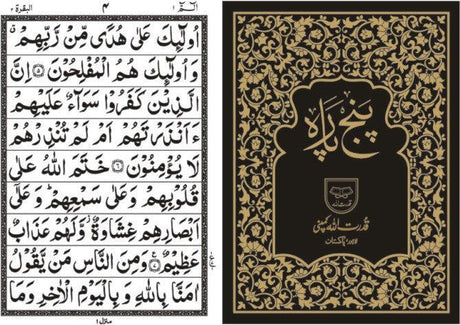 البقرة ٢
٤
الٓمّٓ ١
اُولٰٓئِكَ عَلٰى هُدًى مِّنْ رَّبِّهِمْ ۗ
وَ اُولٰٓئِكَ هُمُ الْمُفْلِحُوْنَ ۝٥ اِنَّ
الَّذِيْنَ كَفَرُوْا سَوَآءٌ عَلَيْهِمْ
ءَاَنْذَرْتَهُمْ اَمْ لَمْ تُنْذِرْهُمْ
لَا يُؤْمِنُوْنَ ۝٦ خَتَمَ اللّٰهُ عَلٰى
قُلُوْبِهِمْ وَعَلٰى سَمْعِهِمْ ؕ وَ عَلٰٓى
اَبْصَارِهِمْ غِشَاوَةٌ ؗ وَّلَهُمْ عَذَابٌ
عَظِيْمٌ ۝٧ وَمِنَ النَّاسِ مَنْ يَّقُوْلُ
اٰمَنَّا بِاللّٰهِ وَ بِالْيَوْمِ الْاٰخِرِ وَمَا
منزل ١
پنج پارہ
قدرت اللہ کمپنی
لاہور پاکستان